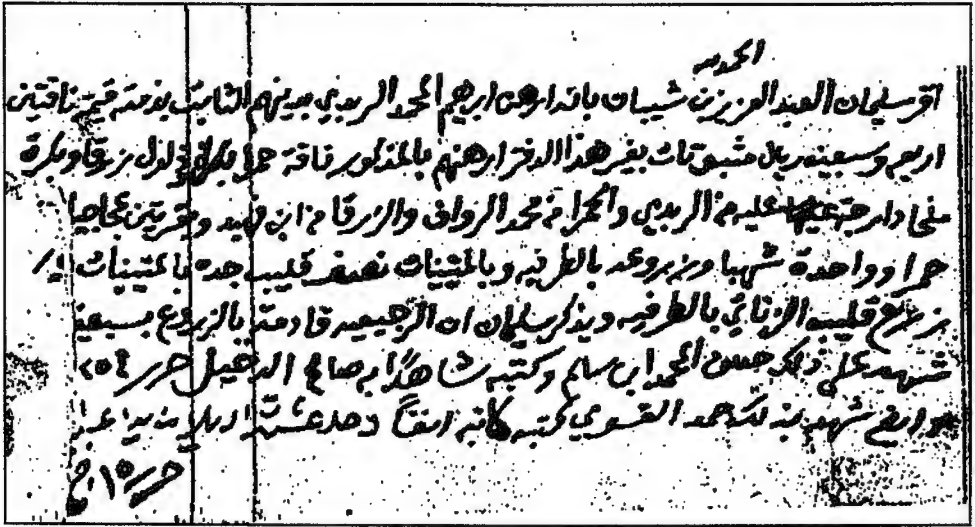 الحمد لله
اقر سليمان العبد العزيز بن شيبان بانه ارهن ابرهيم المحمد الربدي بدينه الثابت بذمته قيمة ناقتين
اربعه وسبعين ريال مثبوتات بغير هذا الدفتر ارهنه بالمذكور ناقة حمرا زرقا وبكرة
ملحا دارجة عليه من الربدي والحمرا من محمد الرواف والزرقا من ابن وبقرتين
حمرا وواحدة شهبا وزروعه بالطرفيه وبالمتينيات نصف قليب جده بالمتينيات
زرع قليب الزناتي بالطرفيه ويذكر سليمان ان الرجيعيه قادمته بالزروع بسبعة
شهد على ذلك حسن المحمد ابن سالم وكتبه شاهدًا به صالح الدخيل حرر
وايضٍ شهد بذلك حمد القسومي كتبه كاتبه انفًا
حرر ١٥ ج